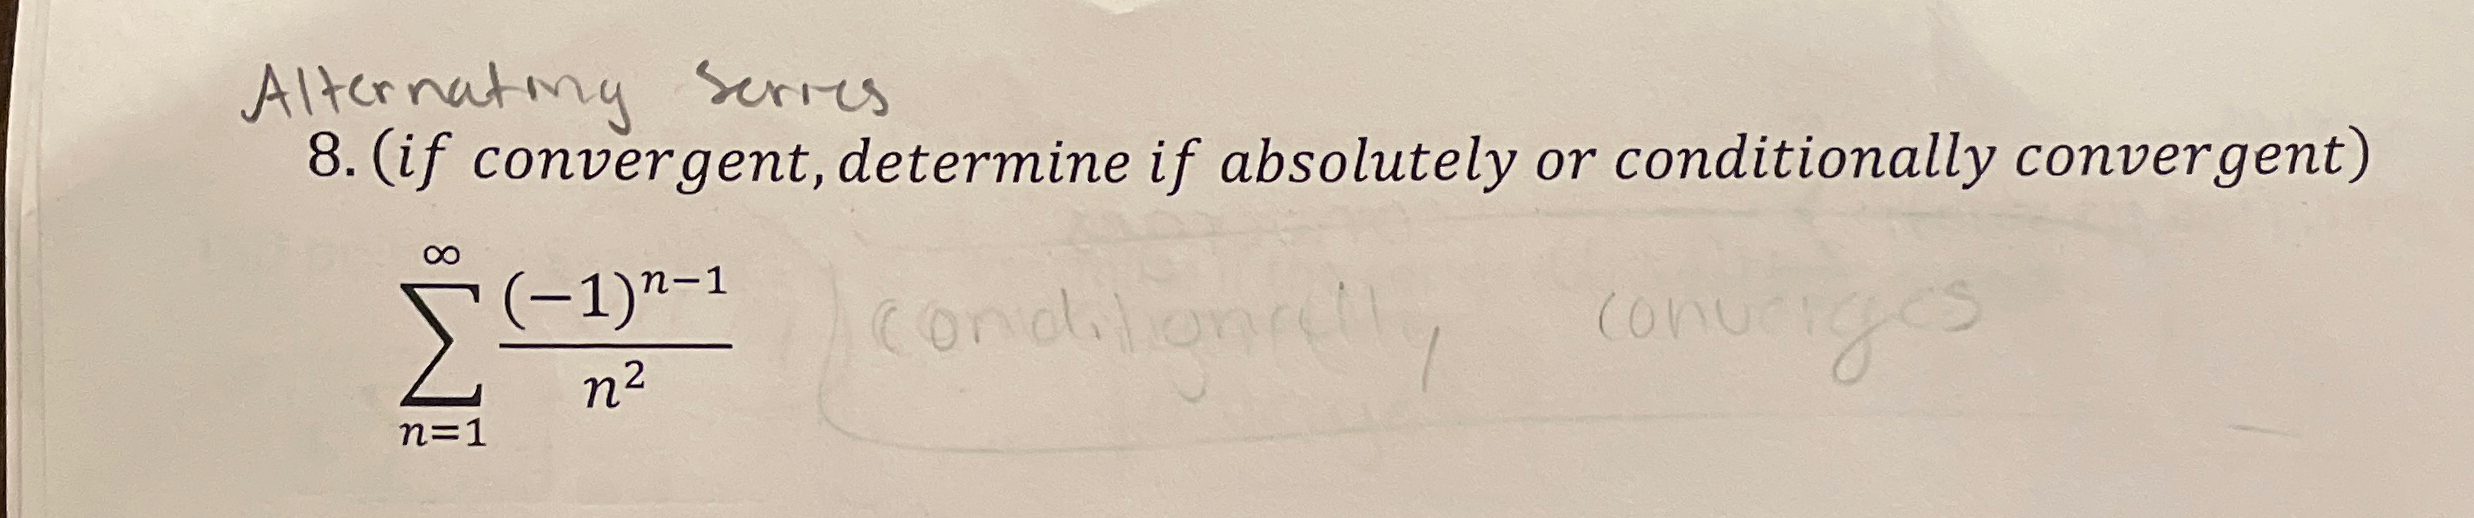 Alternating Series
8. (if convergent, determine if absolutely or conditionally convergent)
∞
∑ (-1)^{n-1} / n^2 conditionally converges
n=1